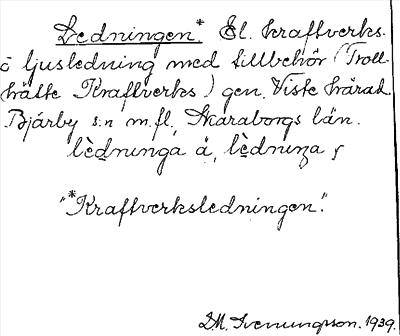 Ledningen.* El. kraftverks-
o ljusledning med tillbehör (Troll-
hätte Kraftverks) gen. Viste härad
Bjärby s:n m.fl, Skaraborgs län.
lèdnınga å, lèdnınga f
"*Kraftverksledningen".
D.M. Svenungsson. 1939.